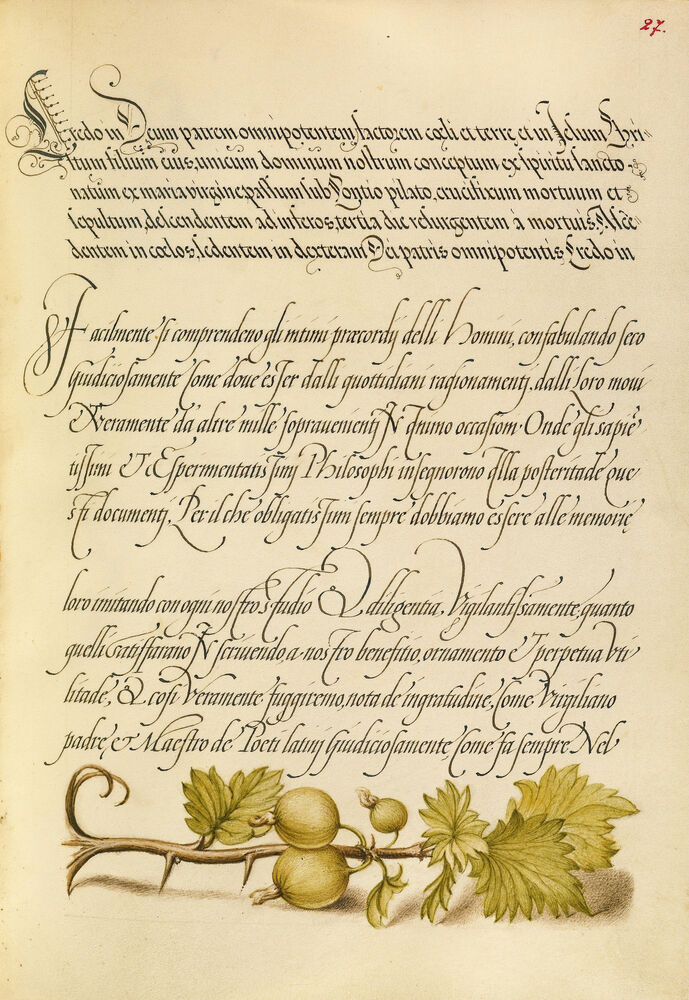 27.
Credo in Deum patrem omnipotentem, factorem cœli et terre, et in Jesum Chri-
stum filium eius, unicum dominum nostrum conceptum ex spiritu sancto
natum ex maria virgine, passum sub Pontio pilato, crucifixum mortuum et
sepultum, descendentem ad inferos, tertia die resurgentem à mortuis. Ascē
dentem in cœlos, sedentem in dexteram Dei patris omnipotentis Credo in
Facilmente si comprendeno gli intimi præcordij delli Homini, confabulando seco
Giudiciosamente Come dove esser dalli quottidiani ragionamenti, dalli Loro movi
Et Veramente da altre mille sopravenienti IN Ognuno occasioni. Onde gli sapiē
tissimi ET Espermentatissimi Philosophi insegnorono Alla posteritade que
sti documenti. Per il che obligatissimi sempre dobbiamo essere alle memorie
loro imitando con ogni nostro studio & diligentia, Vigilantissamente, quanto
quelli satisffarano IN scrivendo, a nostro benefitio, ornamento Et perpetua Vti
litade, & cosi Veramente fuggiremo, nota de ingratudine, Come Virgiliano
padre, & Maestro de Poeti latini Giudiciosamente, Come fa sempre Nel